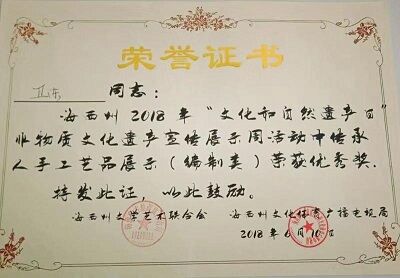 荣誉证书
同志：
海西州2018年“文化和自然遗产日”
非物质文化遗产宣传展示周活动中传承
人手工艺品展示（编制类）荣获优秀奖。
特发此证，以此鼓励。
海西州文学艺术联合会 海西州文化体育广播电视局
2018年6月10日